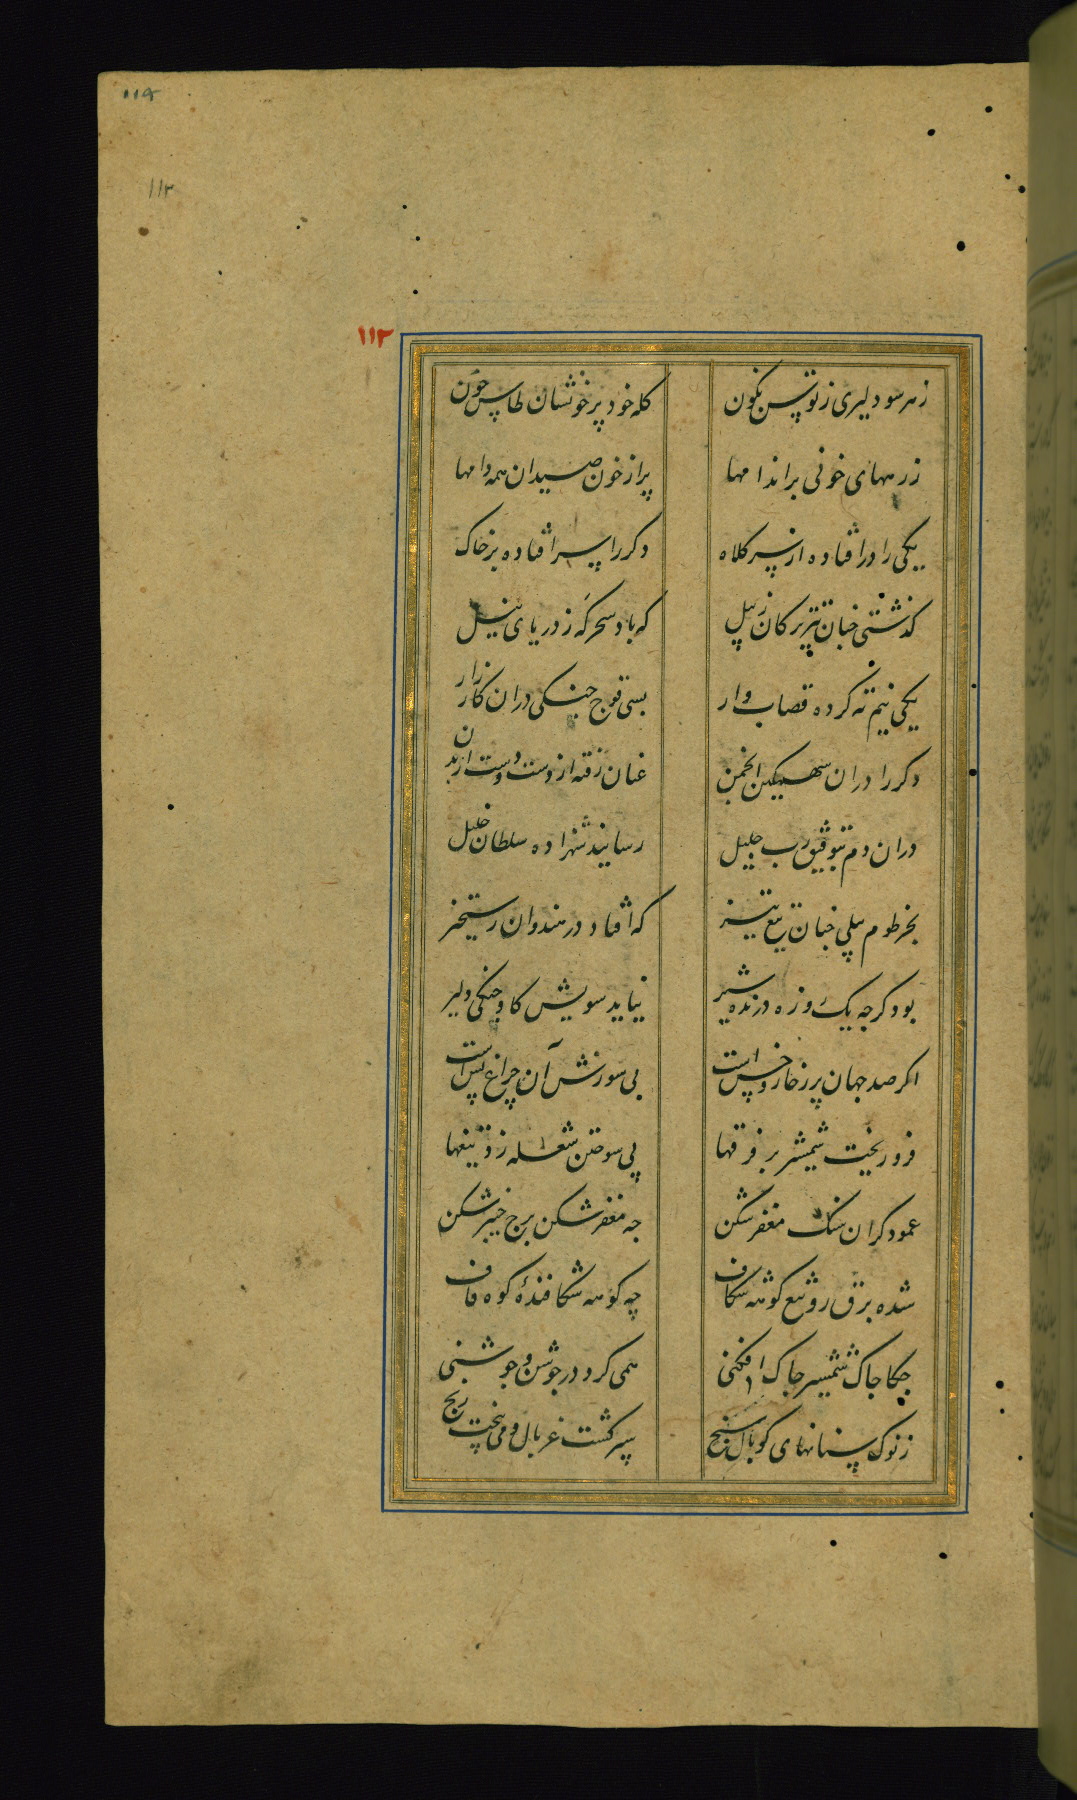 ۱۱۵
۱۱۳
۱۱۲
زهر سو دلیری ز توسن نکون کله خود پر خونشان طاس خون
زرههای خونی بر اندامها پر از خون صیدان همه دامها
یکی را در افتاده از سر کلاه دکر را سر افتاده بر خاک
کذشتی چنان تیر ترکان ز پیل که باد سحرکه ز دریای نیل
یکی نیم ته کرده قصاب وار بسی قوج جنکی دران کارزار
دکر را دران سهمکین انجمن عنان رفته از دست و دست از بدن
دران دم بتوفیق رب جلیل رسانید شهزاده سلطان خلیل
بخرطوم پیلی چنان تیغ تیز که افتاد در هندوان رستخیز
بود کرچه یک روزه درنده شیر نیاید سویش کاو جنکی دلیر
اکر صد جهان پر ز خار و خس است پی سوزنش آن چراغ بس است
فرو ریخت شمشیر بر فرقها پی سوختن شعله زد تیغها
عمود کران سنک مغفر شکن چه مغفر شکن برج خیبر شکن
شده برق رو تیغ کوهه شکاف چه کوهه شکافندهٔ کوه قاف
چکاچاک شمشیر چاک افکنی همی کرد در جوشن و جوشنی
ز نوک سنانهای کوپال سنج سپر کشت غربال و می بیخت